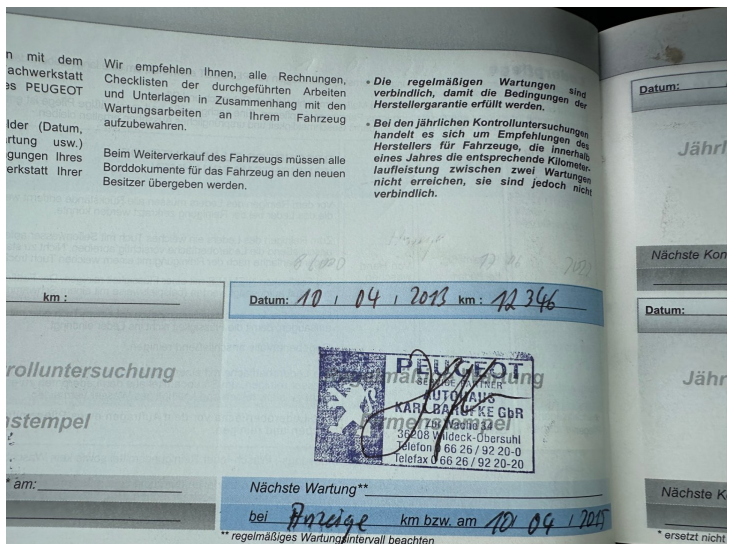 n mit dem
achwerkstatt
es PEUGEOT
lder (Datum,
rtung usw.)
gungen Ihres
erkstatt Ihrer
Wir empfehlen Ihnen, alle Rechnungen,
Checklisten der durchgeführten Arbeiten
und Unterlagen in Zusammenhang mit den
Wartungsarbeiten an Ihrem Fahrzeug
aufzubewahren.
Beim Weiterverkauf des Fahrzeugs müssen alle
Borddokumente für das Fahrzeug an den neuen
Besitzer übergeben werden.
• Die regelmäßigen Wartungen sind
verbindlich, damit die Bedingungen der
Herstellergarantie erfüllt werden.
• Bei den jährlichen Kontrolluntersuchungen
handelt es sich um Empfehlungen des
Herstellers für Fahrzeuge, die innerhalb
eines Jahres die entsprechende Kilometer-
laufleistung zwischen zwei Wartungen
nicht erreichen, sie sind jedoch nicht
verbindlich.
km :
rolluntersuchung
nstempel
* am:
Datum: 10 / 04 / 2013 km : 12 346
PEUGEOT
SERVICE PARTNER
AUTOHAUS
KARL BARUFKE GbR
36208 Wildeck-Obersuhl
Telefon 0 66 26 / 92 20-0
Telefax 0 66 26 / 92 20-20
Nächste Wartung**
bei Anzeige km bzw. am 10/ 04 / 2015
** regelmäßiges Wartungsintervall beachten
Datum:
Jährl
Nächste Kon
Datum:
Jähr
Nächste K
* ersetzt nicht